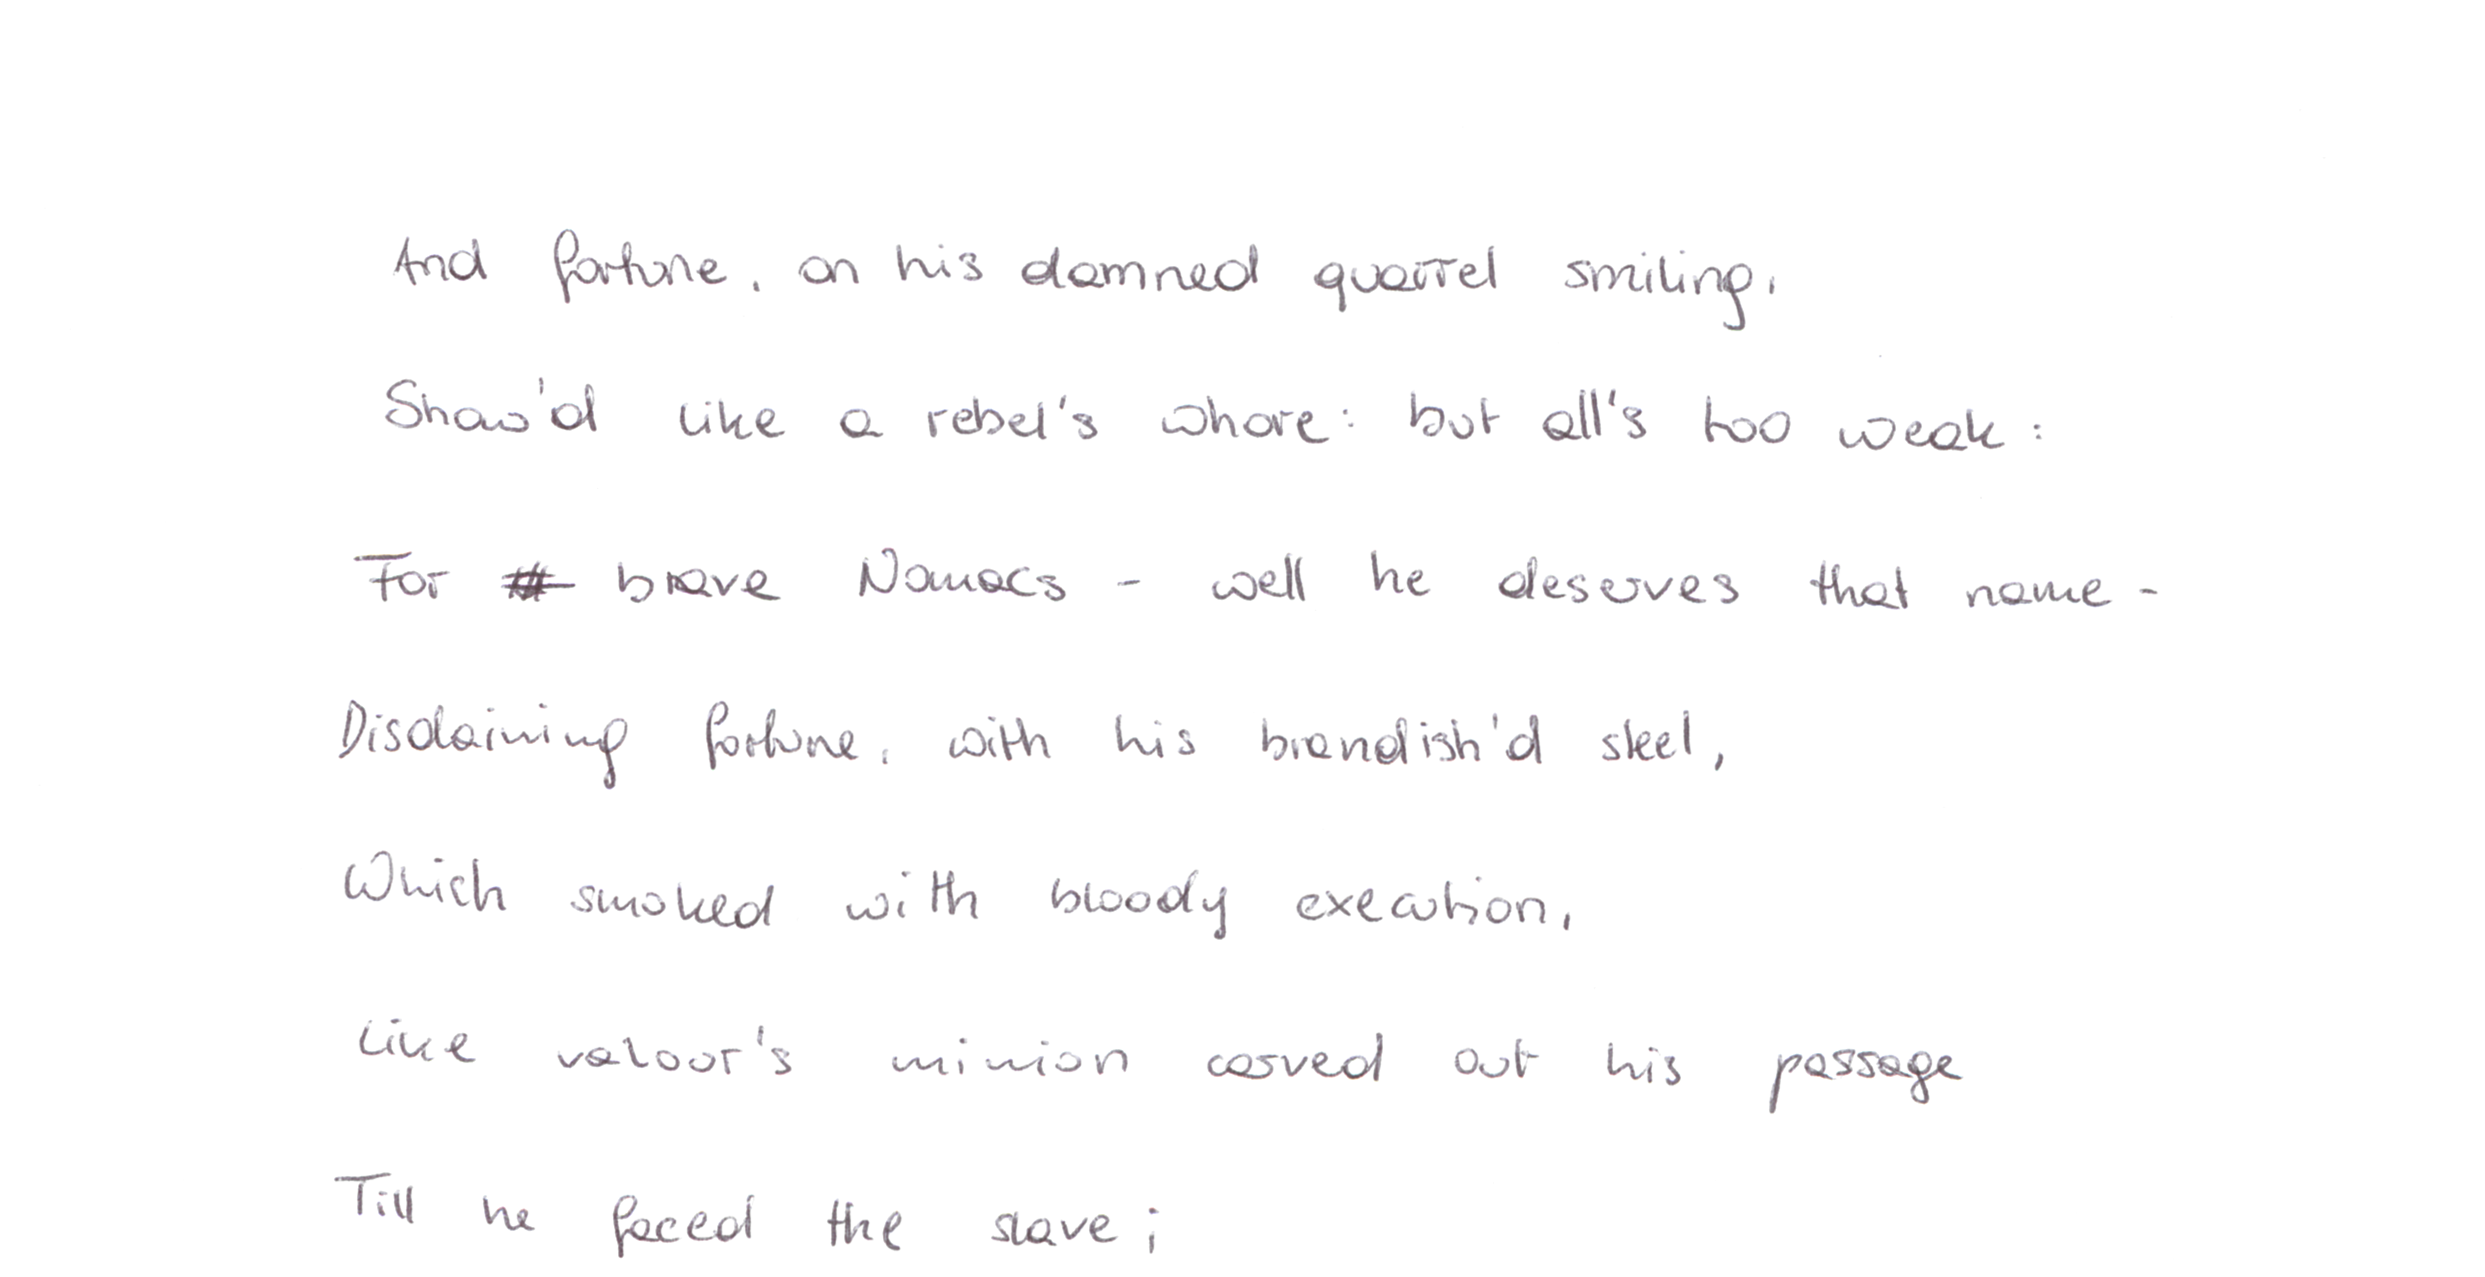 And fortune, on his damned quarrel smiling,
Show'd like a rebel's whore: but all's too weak:
For brave Namacs - well he deserves that name -
Disdaining fortune, with his brandish'd steel,
Which smoked with bloody execution,
Like valour's minion carved out his passage
Till he faced the slave;